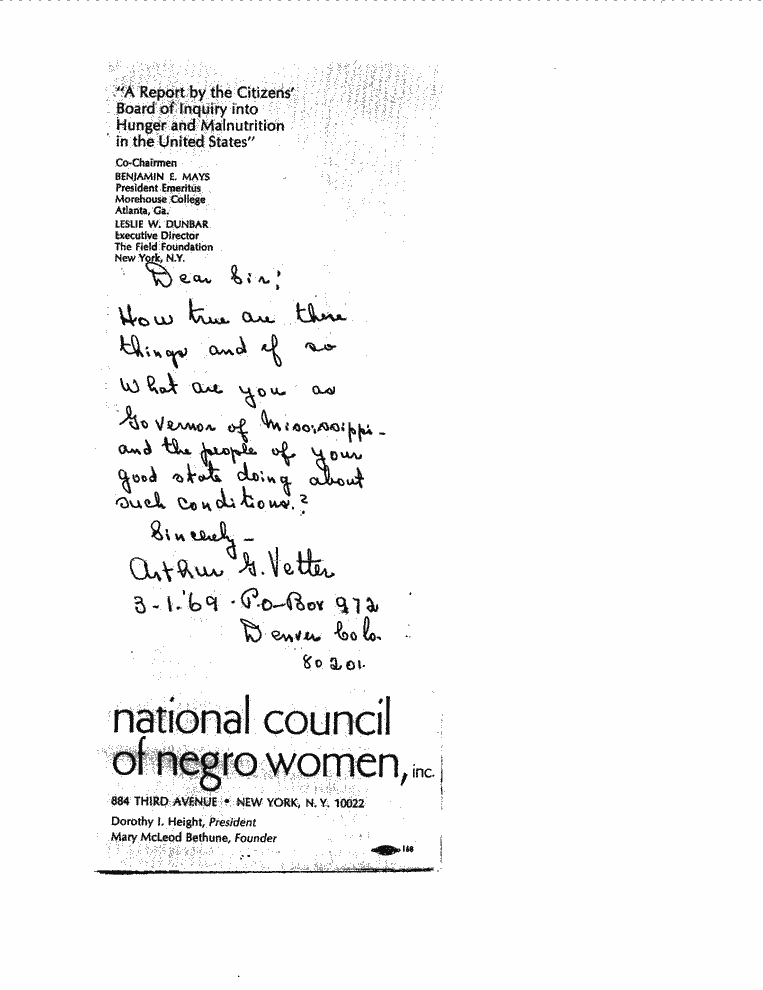 "A Report by the Citizens'
Board of Inquiry into
Hunger and Malnutrition
in the United States"
Co-Chairmen
BENJAMIN E. MAYS
President Emeritus
Morehouse College
Atlanta, Ga.
LESLIE W. DUNBAR
Executive Director
The Field Foundation
New York, N.Y.
Dear Sir;
How true are these
things and if so
What are you as
Governor of Mississippi -
and the people of your
good state doing about
such conditions.?
Sincerely -
Arthur G. Vetter
3-1-'69 - P.O-Box 972
Denver Colo.
80201.
national council
of negro women, inc.
884 THIRD AVENUE • NEW YORK, N. Y. 10022
Dorothy I. Height, President
Mary McLeod Bethune, Founder
168